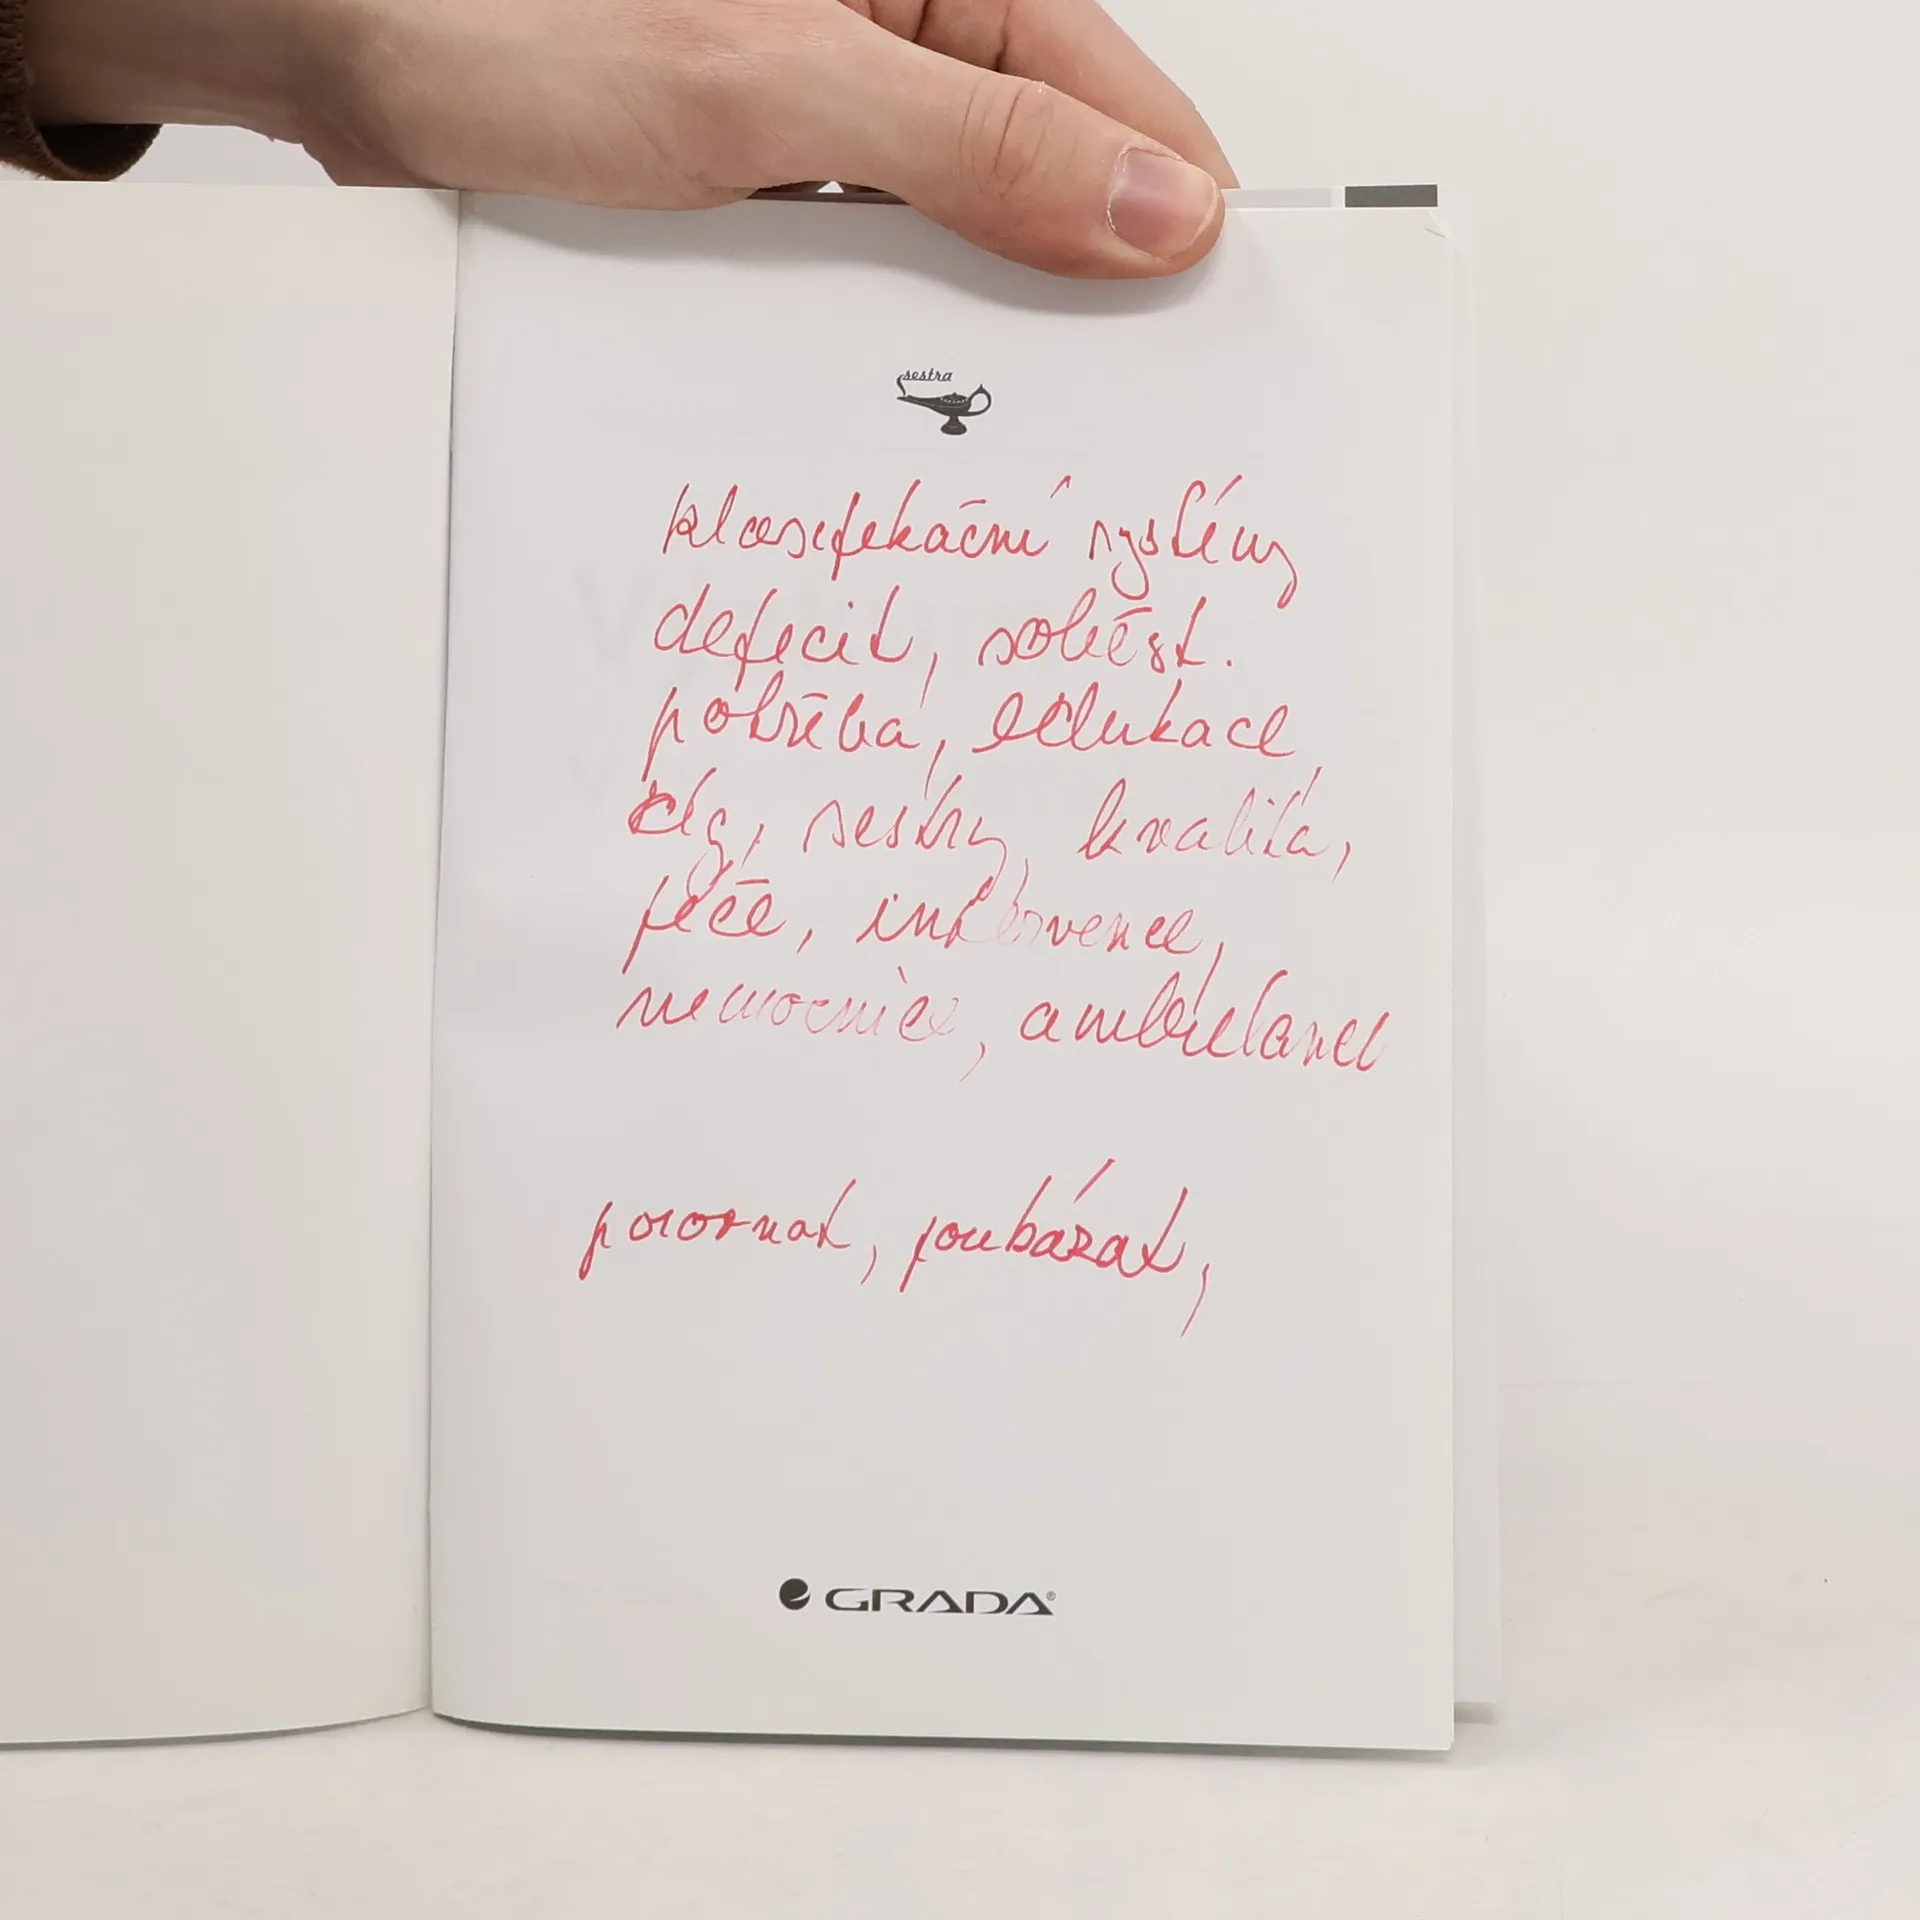 sestra
klasifikační systémy
deficit, soběst.
potřeba, edukace
cíly, sestry, kvalita,
péče, intervence,
nemocnice, ambulance
porovnat, poukázat,
GRADA®